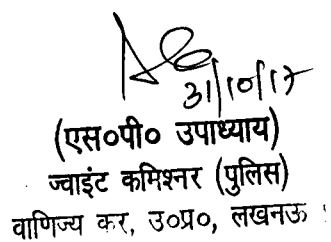 31/10/17
(एस०पी० उपाध्याय)
ज्वाइंट कमिश्नर (पुलिस)
वाणिज्य कर, उ०प्र०, लखनऊ